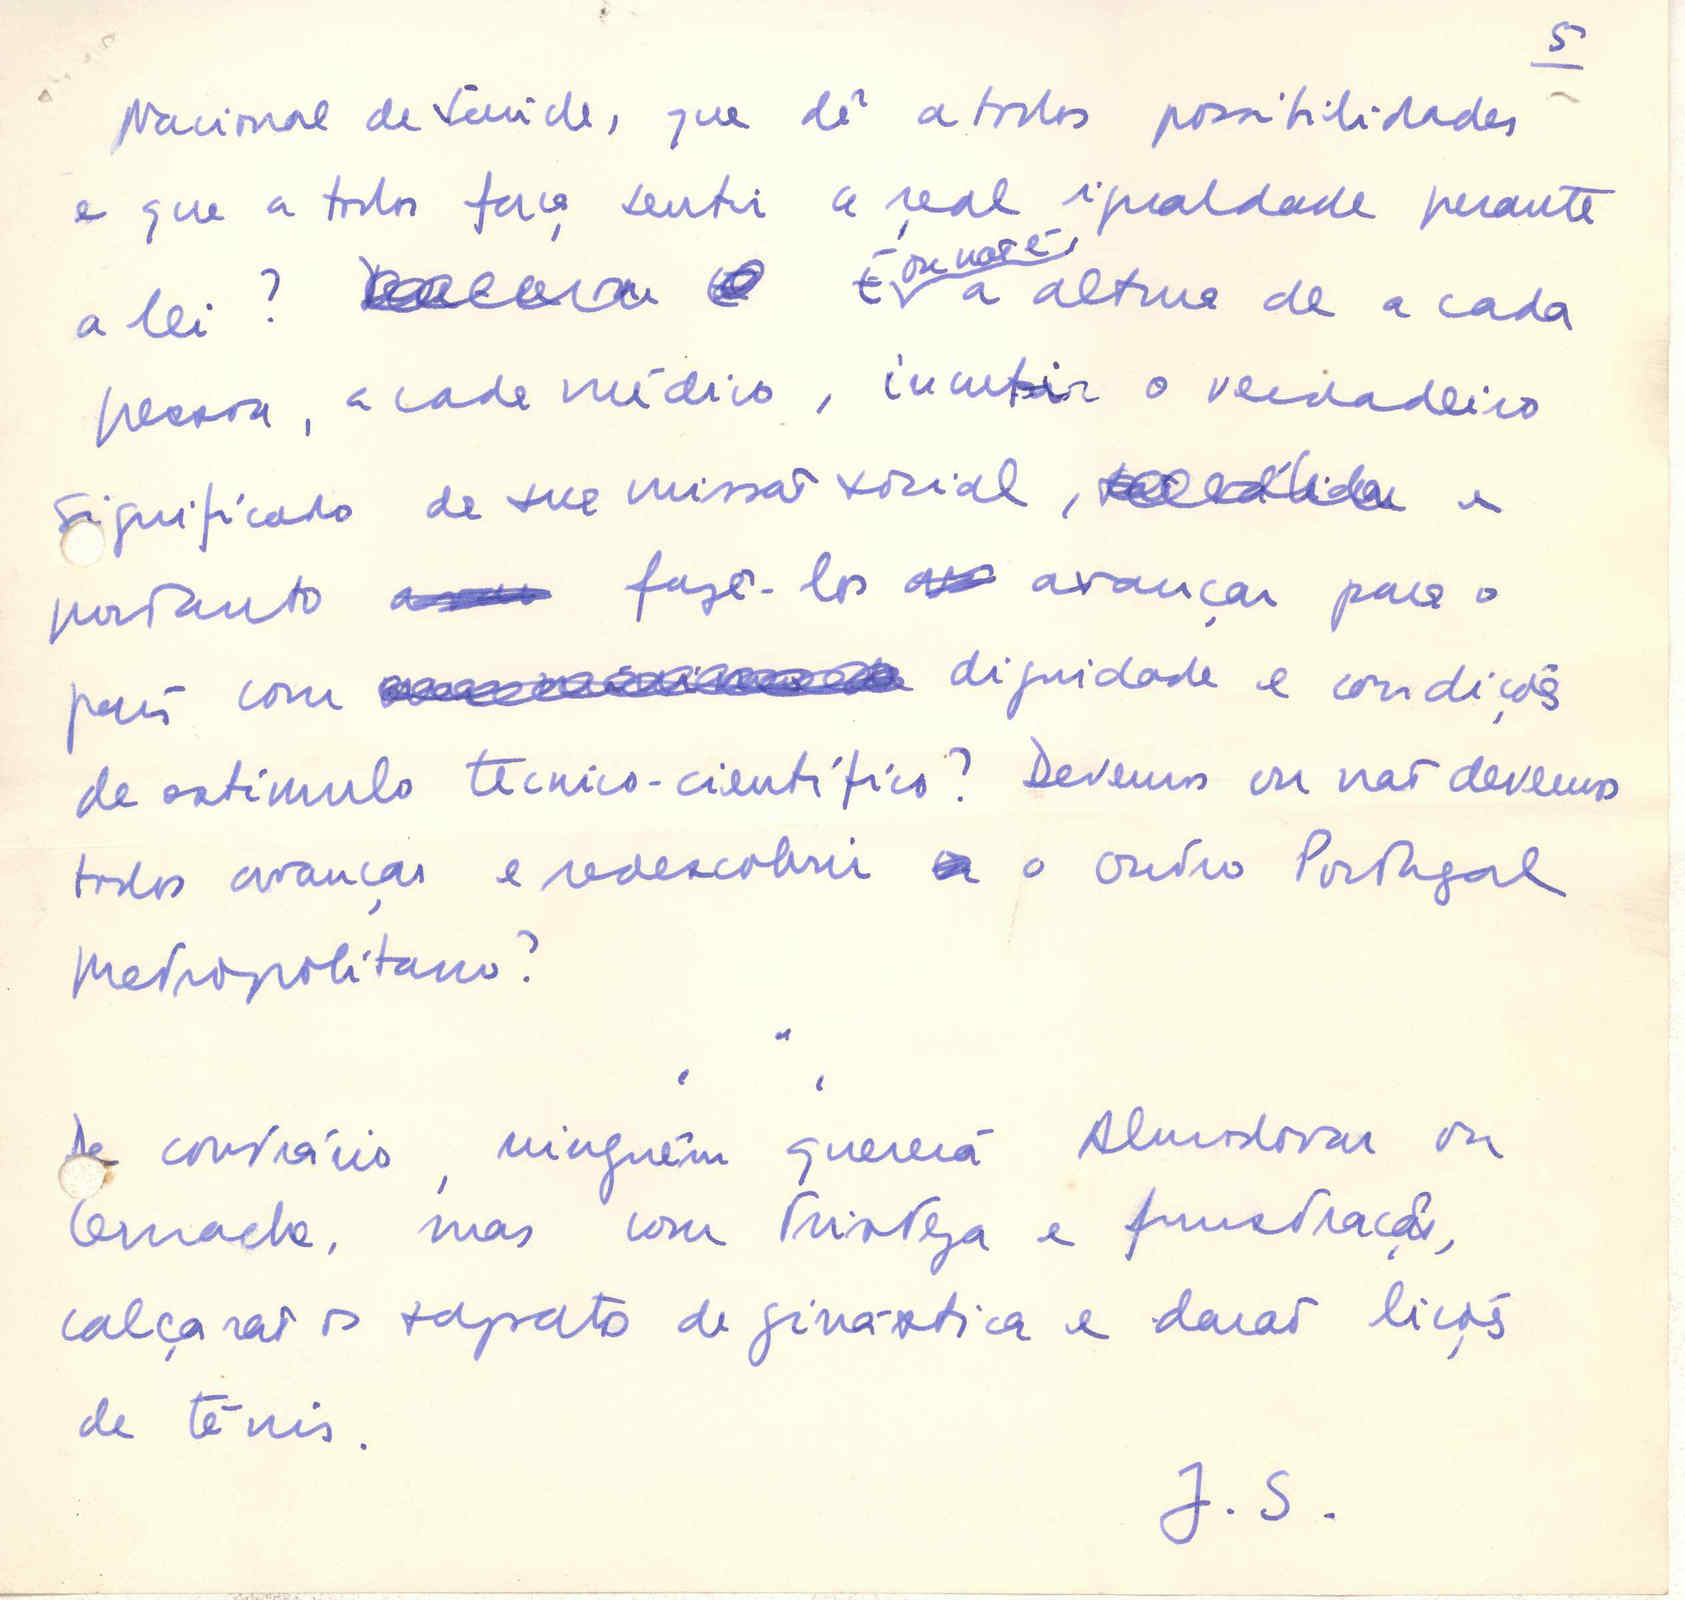 5
Nacional de Saúde, que dê a todos possibilidades
e que a todos faça sentir a real igualdade perante
a lei? É ou não é, a altura de a cada
pessoa, a cada médico, incutir o verdadeiro
significado da sua missão social, e
portanto fazê-los avançar para o
país com dignidade e condições
de estímulo técnico-científico? Devemos ou não devemos
todos avançar e redescobrir o outro Portugal
Metropolitano?
De contrário, ninguém quererá Almodovar ou
Cernache, mas com tristeza e frustração,
calçarão os sapatos de ginástica e darão lições
de ténis.
J. S.